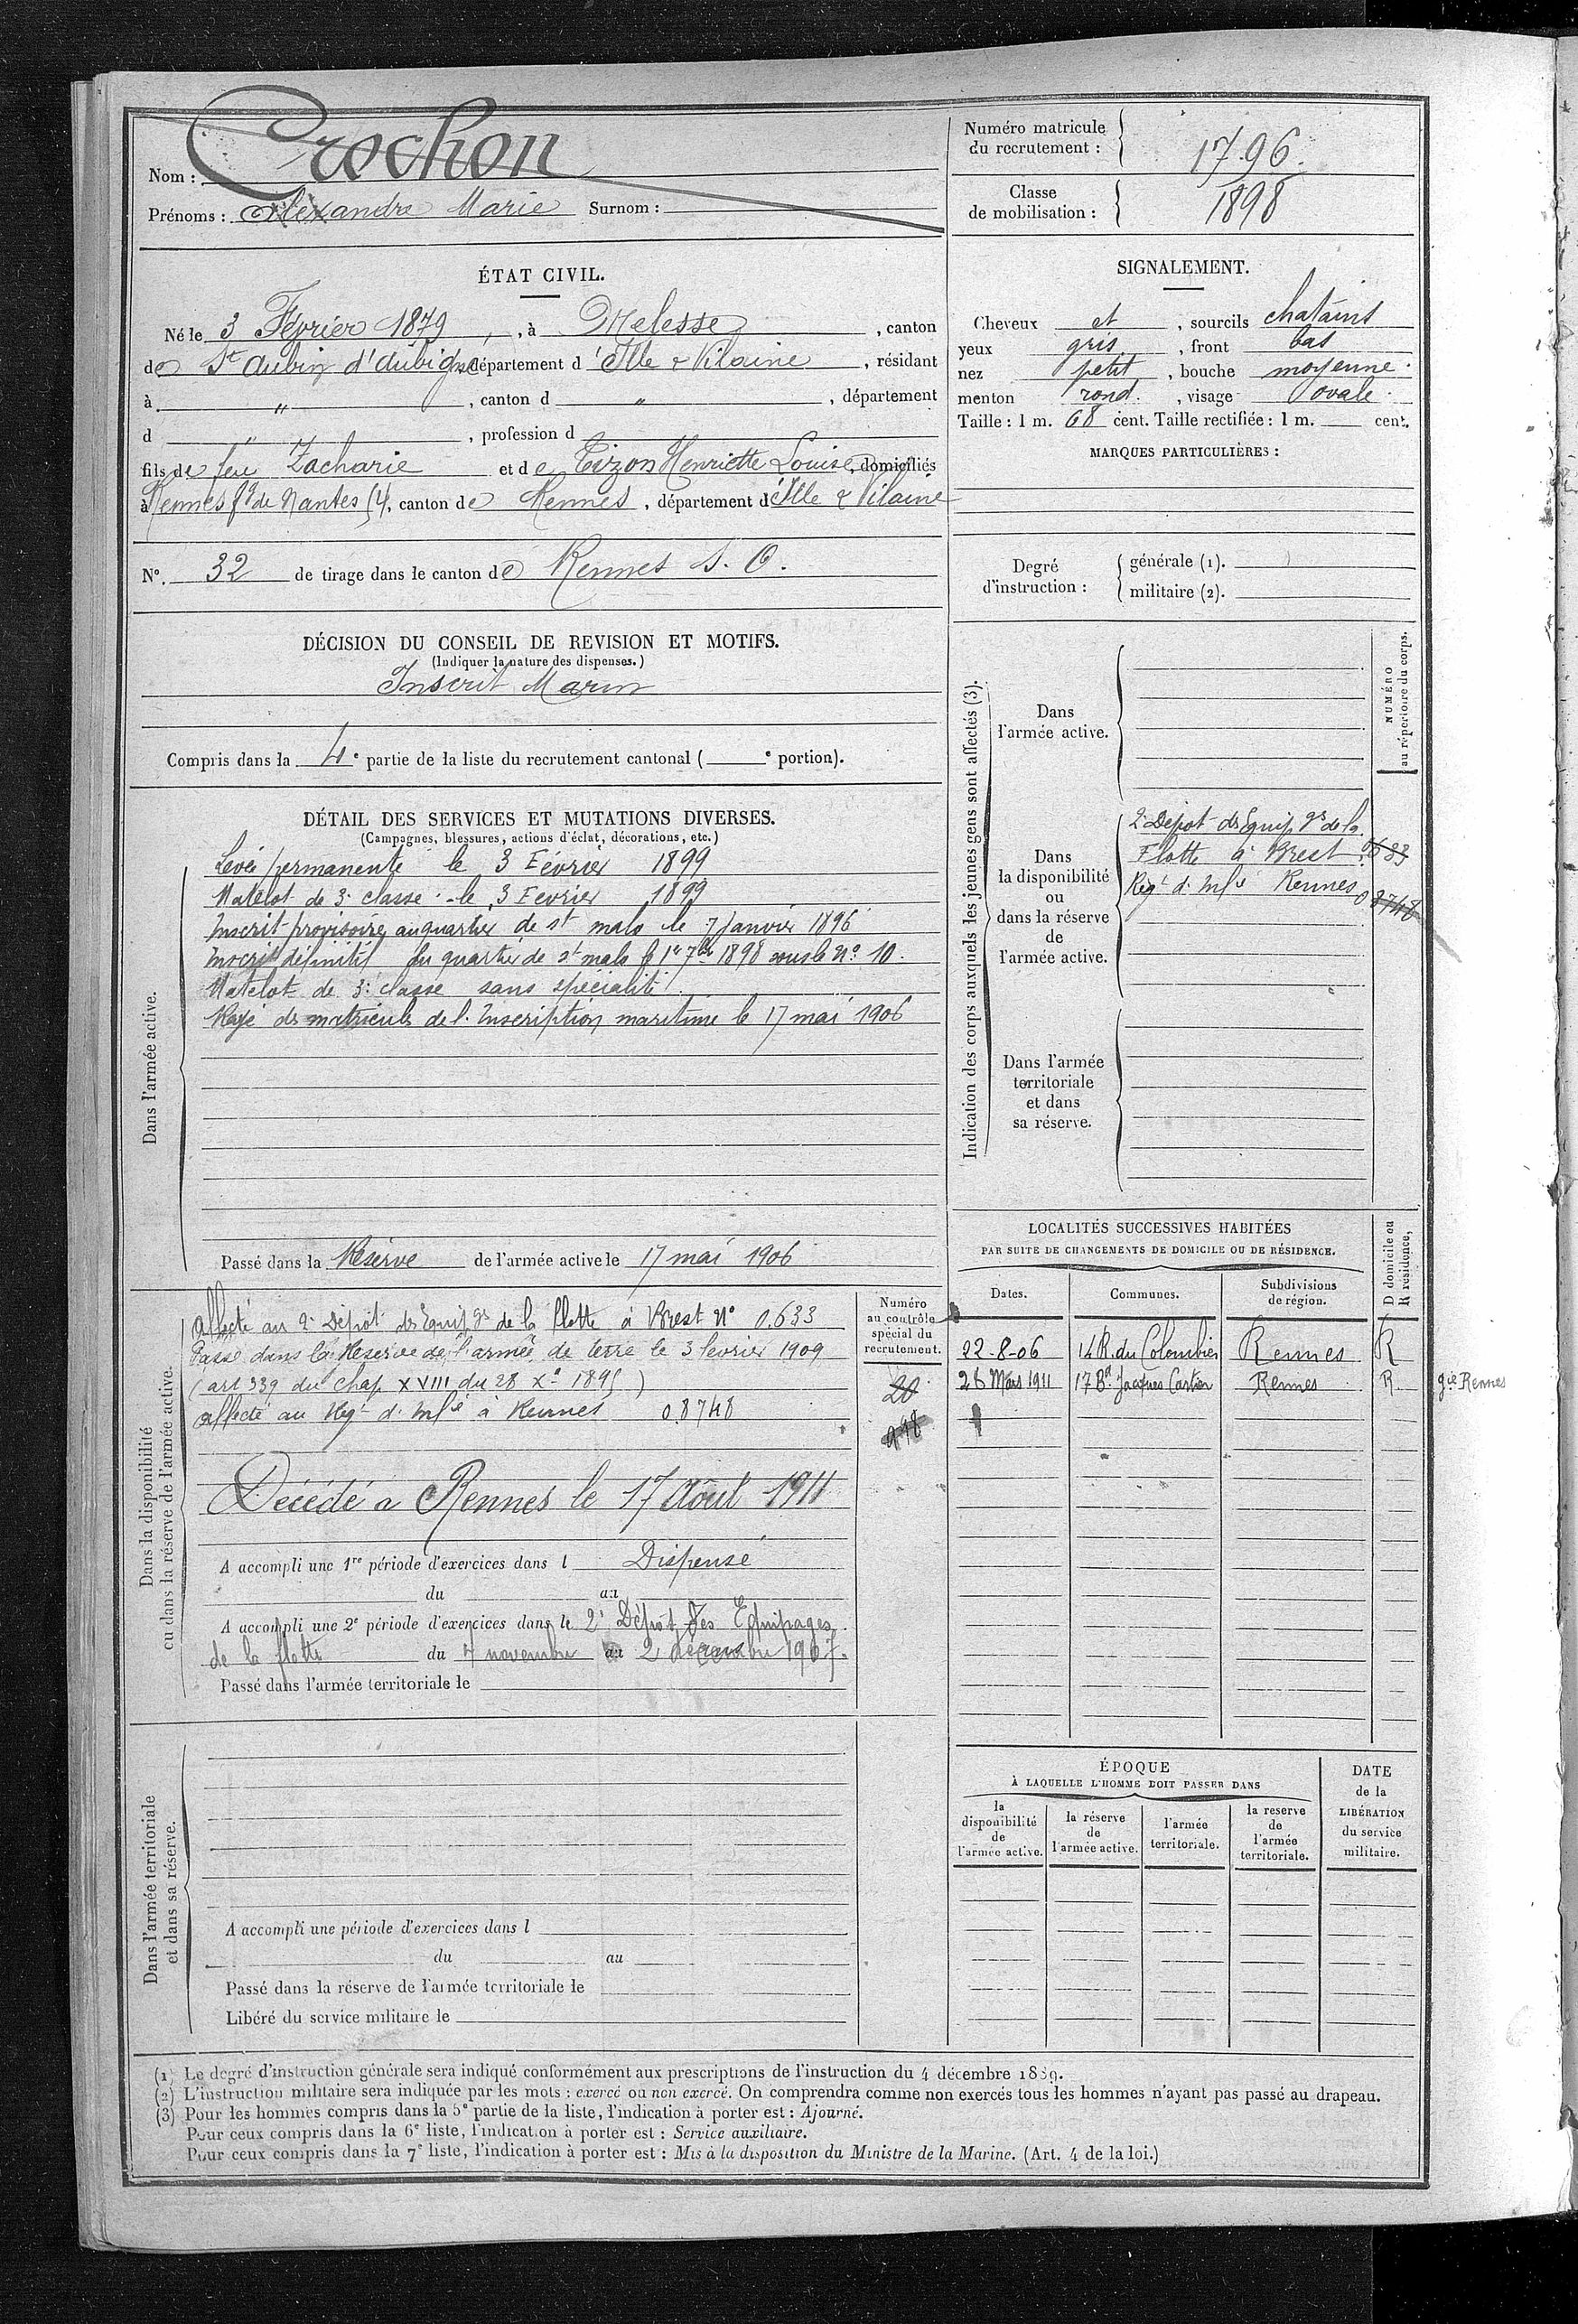 Nom : Crochon
Prénoms : Alexandre Marie Surnom :
Numéro matricule du recrutement : 1796.
Classe de mobilisation : 1898
ÉTAT CIVIL.
Né le 3 Février 1879, à Melesse, canton
de St Aubin d'Aubigné département d'Ille & Vilaine, résidant
à " , canton d " , département
d " , profession d
fils de feu Zacharie et de Tizon Henriette Louise, domiciliés
à Rennes fg de Nantes 54, canton de Rennes, département d'Ille & Vilaine
N°. 32 de tirage dans le canton de Rennes S. O.
SIGNALEMENT.
Cheveux et , sourcils chatains
yeux gris , front bas
nez petit , bouche moyenne
menton rond. , visage ovale.
Taille : 1 m. 68 cent. Taille rectifiée : 1 m. cent.
MARQUES PARTICULIÈRES :
Degré d'instruction : générale (1).
militaire (2).
DÉCISION DU CONSEIL DE REVISION ET MOTIFS.
(Indiquer la nature des dispenses.)
Inscrit Marin
Compris dans la 4e partie de la liste du recrutement cantonal ( e portion).
DÉTAIL DES SERVICES ET MUTATIONS DIVERSES.
(Campagnes, blessures, actions d'éclat, décorations, etc.)
Dans l'armée active.
Levée permanente le 3 Février 1899
Matelot de 3e classe le 3 Fevrier 1899
Inscrit provisoire au quartier de st malo le 7 Janvier 1896
Inscrit définitif au quartier de st malo le 1er 7bre 1898 sous le N° 10.
Matelot de 3e classe sans spécialité.
Rayé des matricules de l'Inscription maritime le 17 mai 1906
Passé dans la Réserve de l'armée active le 17 mai 1906
Indication des corps auxquels les jeunes gens sont affectés (3).
NUMÉRO au répertoire du corps.
Dans l'armée active.
Dans la disponibilité ou dans la réserve de l'armée active.
2e Dépot des Equipges de la
Flotte à Brest 0633
Regt d'Infie Rennes 08748
Dans l'armée territoriale et dans sa réserve.
Dans la disponibilité ou dans la réserve de l'armée active.
Affecté au 2e Dépôt des Equipges de la flotte à Brest N° 0.633
Passé dans la Réserve de l'armée de terre le 3 fevrier 1909
(art 339 du chap XVIII du 28 Xe 1895)
affecté au Regt d'Infie à Rennes 08748
Décédé à Rennes le 17 Août 1911
Numéro au contrôle spécial du recrutement.
20
998
A accompli une 1re période d'exercices dans l Dispensé
du au
A accompli une 2e période d'exercices dans le 2e Dépôt des Equipages
de la flotte du 7 novembre au 2 décembre 1907.
Passé dans l'armée territoriale le
LOCALITÉS SUCCESSIVES HABITÉES
PAR SUITE DE CHANGEMENTS DE DOMICILE OU DE RÉSIDENCE.
D domicile ou R résidence,
Dates. Communes. Subdivisions de région.
22-8-06 14 R. du Colombier Rennes R
28 Mars 1911 17 Bd Jacques Cartier Rennes R. gie Rennes
Dans l'armée territoriale et dans sa réserve.
A accompli une période d'exercices dans l
du au
Passé dans la réserve de l'armée territoriale le
Libéré du service militaire le
ÉPOQUE
À LAQUELLE L'HOMME DOIT PASSER DANS
la disponibilité de l'armée active. la réserve de l'armée active. l'armée territoriale. la reserve de l'armée territoriale.
DATE de la LIBÉRATION du service militaire.
(1) Le degré d'instruction générale sera indiqué conformément aux prescriptions de l'instruction du 4 décembre 1889.
(2) L'instruction militaire sera indiquée par les mots : exercé ou non exercé. On comprendra comme non exercés tous les hommes n'ayant pas passé au drapeau.
(3) Pour les hommes compris dans la 5e partie de la liste, l'indication à porter est : Ajourné.
Pour ceux compris dans la 6e liste, l'indication à porter est : Service auxiliaire.
Pour ceux compris dans la 7e liste, l'indication à porter est : Mis à la disposition du Ministre de la Marine. (Art. 4 de la loi.)